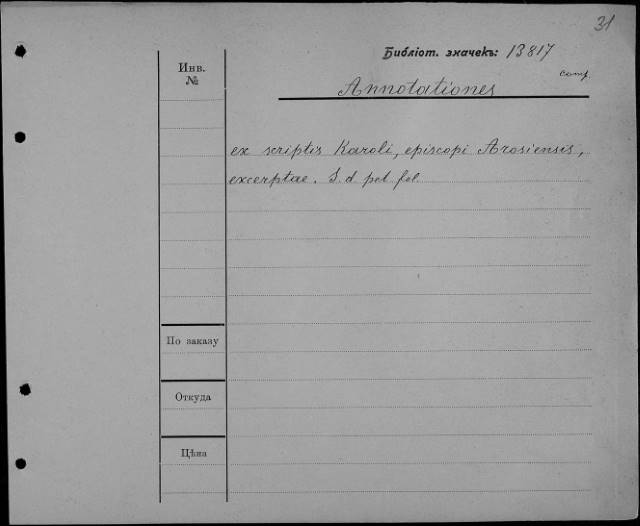 31
Библіот. значекъ: 13817
Инв.
№
comp.
Annotationes
ex scriptis Karoli, episcopi Arosiensis,
excerptae. S. d pet fol
По заказу
Откуда
Цѣна